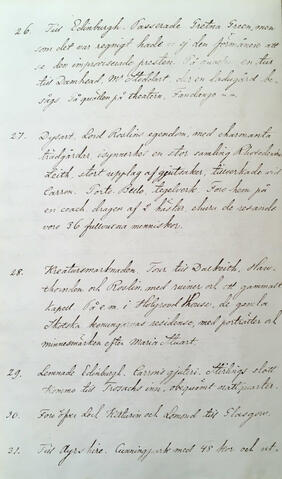 26. Till Edinburgh. Passerade Gretna Green, men
som det var regnigt hade vi ej den förmånen att
se den improviserade presten. På en tur
till Damhead, Mr Stoddart, der en ladugård be-
sågs. På qvällen på theatern, Fandango —
27. Dysart, Lord Roslins egendom, med charmanta
trädgårdar, isynnerhet en stor samling Rhododendron
Leith, stort upplag af gjutsaker, tillverkade vid
Carron. Porto Bello, tegelverk. Fore hem på
en coach dragen af 2 hästar, churu de resande
voro 36 fullvuxna menniskor.
28. Kreatursmarknaden. Tour till Dalkeith, Haw-
thornden och Roslin, med ruiner och ett gammalt
kapell. På e.m. i Holyrood House, de gamla
Skotska konungarnas residens, med porträtter och
minnesmärken efter Maria Stuart.
29. Lemnade Edinburgh. Carrons gjuteri. Stirlings slott
kommo till Trosachs inn, obeqvämt nattqvarter.
30. Foro öfver Loch Katharin och Lomond till Glasgow.
31. Till Ayrshire. Cunningpark med 48 kor och ut-